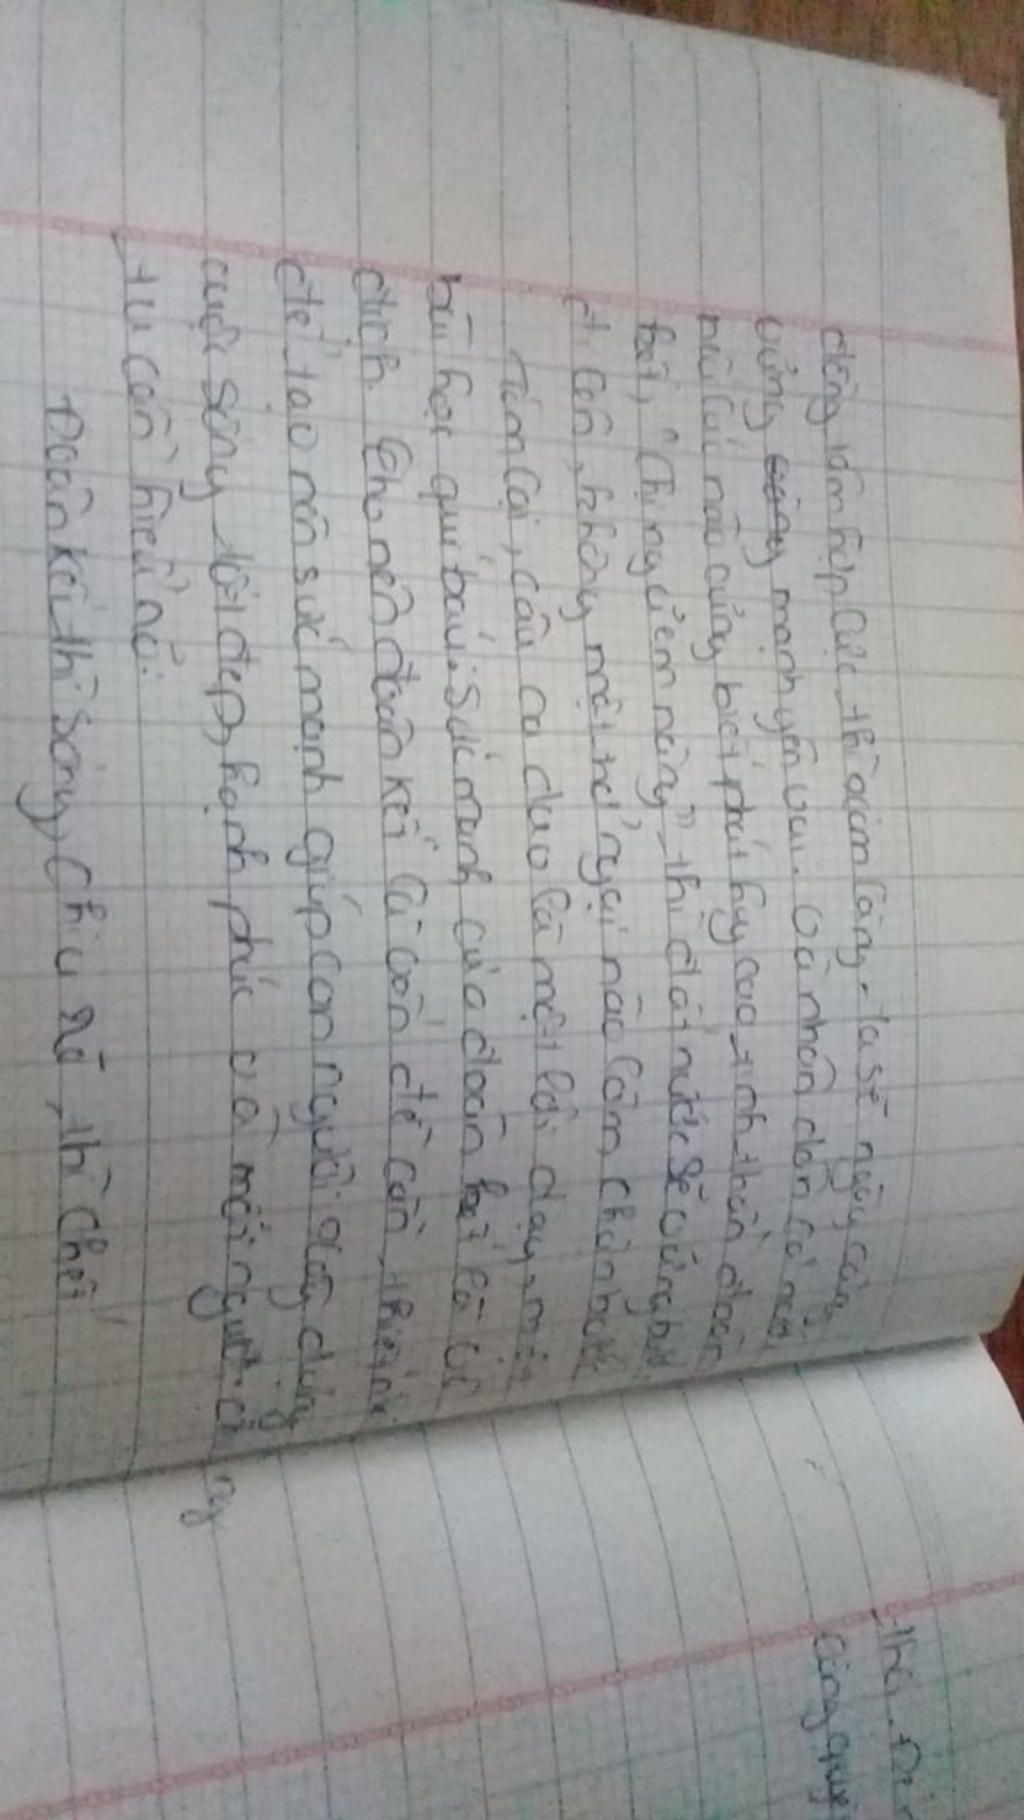 đồng tâm hiệp lực thì xóm làng ta sẽ ngày càng
vững mạnh yên vui. Và nhân dân cả nước
nếu lúc nào cũng biết phát huy cao tinh thần đoàn
kết, "chị ngã em nâng" thì đất nước sẽ vững bước
đi lên, không một trở ngại nào làm chùn bước.
Tóm lại, câu ca dao là một lời dạy, một
bài học quí báu. Sức mạnh của đoàn kết là vô
địch. Cho nên đoàn kết là vấn đề cần thiết
để tạo nên sức mạnh giúp con người xây dựng
cuộc sống tốt đẹp, hạnh phúc và mỗi người chúng
ta cần hiểu nó:
Đoàn kết thì sống, chia rẽ thì chết
thái.
cùng quý